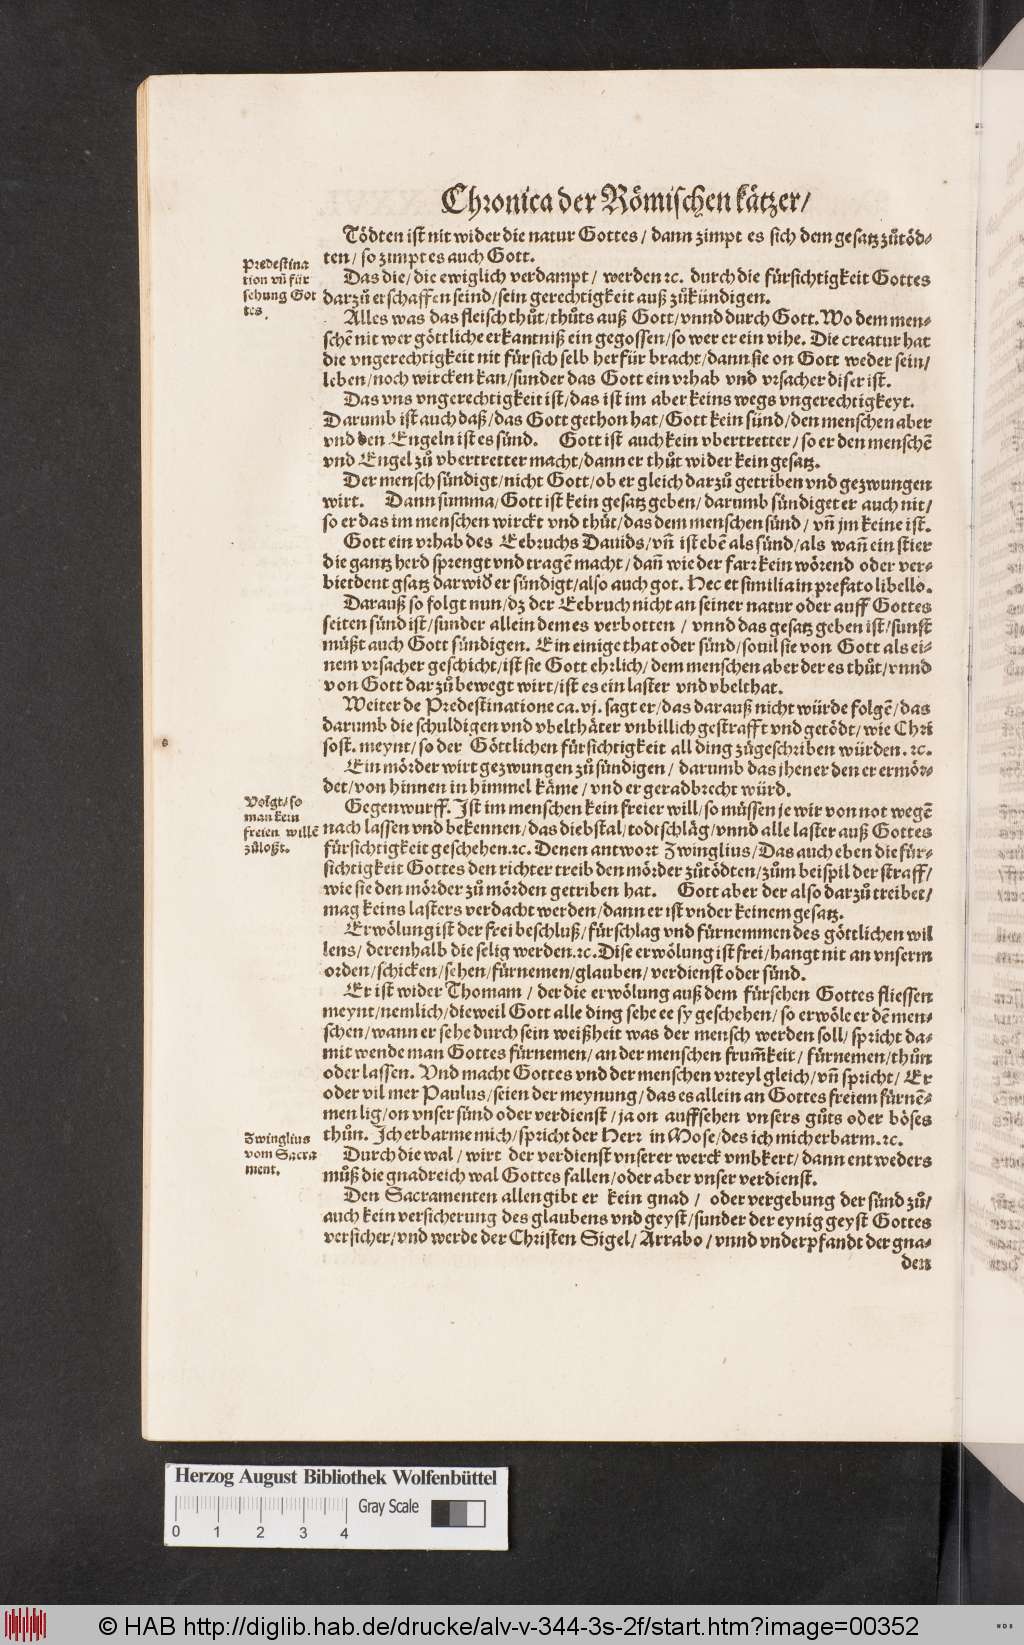 Chronica der Römischen kätzer/
Tödten ist nit wider die natur Gottes/ dann zimpt es sich dem gesatz zůtöd-
ten/ so zimpt es auch Gott.
Predestina
tion vn̄ für
sehung Got
tes.
Das die/ die ewiglich verdampt/ werden ꝛc. durch die fürsichtigkeit Gottes
darzů erschaffen seind/ sein gerechtigkeit auß zůkündigen.
Alles was das fleisch thůt/ thůts auß Gott/ vnnd durch Gott. Wo dem men-
schē nit wer göttliche erkantniß ein gegossen/ so wer er ein vihe. Die creatur hat
die vngerechtigkeit nit für sich selb herfür bracht/ dann sie on Gott weder sein/
leben/ noch wircken kan/ sunder das Gott ein vrhab vnd vrsacher diser ist.
Das vns vngerechtigkeit ist/ das ist im aber keins wegs vngerechtigkeyt.
Darumb ist auch daß/ das Gott gethon hat/ Gott kein sünd/ den menschen aber
vnd den Engeln ist es sünd. Gott ist auch kein vbertretter/ so er den menschē
vnd Engel zů vbertretter macht/ dann er thůt wider kein gesatz.
Der mensch sündigt/ nicht Gott/ ob er gleich darzů getriben vnd gezwungen
wirt. Dann summa/ Gott ist kein gesatz geben/ darumb sündiget er auch nit/
so er das im menschen wirckt vnd thůt/ das dem menschen sünd/ vn̄ jm keine ist.
Gott ein vrhab des Eebruchs Dauids/ vn̄ ist ebē als sünd/ als wan̄ ein stier
die gantz herd sprengt vnd tragē macht/ dan̄ wie der farr kein wörend oder ver-
bietdent gsatz darwid̕ er sündigt/ also auch got. Hec et similia in prefato libello.
Darauß so folgt nun/ dz der Eebruch nicht an seiner natur oder auff Gottes
seiten sünd ist/ sunder allein dem es verbotten/ vnnd das gesatz geben ist/ sunst
müßt auch Gott sündigen. Ein einige that oder sünd/ souil sie von Gott als ei-
nem vrsacher geschicht/ ist sie Gott ehrlich/ dem menschen aber der es thůt/ vnnd
von Gott darzů bewegt wirt/ ist es ein laster vnd vbelthat.
Weiter de Predestinatione ca. vj. sagt er/ das darauß nicht würde folgē/ das
darumb die schuldigen vnd vbelthäter vnbillich gestrafft vnd getödt/ wie Chri
sost. meynt/ so der Göttlichen fürsichtigkeit all ding zůgeschriben würden. ꝛc.
Ein mörder wirt gezwungen zů sündigen/ darumb das jhener den er ermör-
det/ von hinnen in himmel käme/ vnd er geradbrecht würd.
Volgt/ so
man kein
freien willē
zůloßt.
Gegenwurff. Ist im menschen kein freier will/ so müssen je wir von not wegē
nach lassen vnd bekennen/ das diebstal/ todtschläg/ vnnd alle laster auß Gottes
fürsichtigkeit geschehen. ꝛc. Denen antwort Zwinglius/ Das auch eben die für-
sichtigkeit Gottes den richter treib den mörder zůtödten/ zům beispil der straff/
wie sie den mörder zů mörden getriben hat. Gott aber der also darzů treibet/
mag keins lasters verdacht werden/ dann er ist vnder keinem gesatz.
Erwölung ist der frei beschluß/ fürschlag vnd fürnemmen des göttlichen wil
lens/ derenhalb die selig werden. ꝛc. Dise erwölung ist frei/ hangt nit an vnserm
orden/ schicken/ sehen/ fürnemen/ glauben/ verdienst oder sünd.
Er ist wider Thomam/ der die erwölung auß dem fürsehen Gottes fliessen
meynt/ nemlich/ dieweil Gott alle ding sehe ee sy geschehen/ so erwöle er dē men-
schen/ wann er sehe durch sein weißheit was der mensch werden soll/ spricht da-
mit wende man Gottes fürnemen/ an der menschen frum̄keit/ fürnemen/ thůn
oder lassen. Vnd macht Gottes vnd der menschen vrteyl gleich/ vn̄ spricht/ Er
oder vil mer Paulus/ seien der meynung/ das es allein an Gottes freiem fürnē-
men lig/ on vnser sünd oder verdienst/ ja on auffsehen vnsers gůts oder böses
thůn. Ich erbarme mich/ spricht der Herr in Mose/ des ich mich erbarm. ꝛc.
Zwinglius
vom Sacra
ment.
Durch die wal/ wirt der verdienst vnserer werck vmbkert/ dann entweders
můß die gnadreich wal Gottes fallen/ oder aber vnser verdienst.
Den Sacramenten allen gibt er kein gnad/ oder vergebung der sünd zů/
auch kein versicherung des glaubens vnd geyst/ sunder der eynig geyst Gottes
versicher/ vnd werde der Christen Sigel/ Arrabo/ vnnd vnderpfandt der gna-
den
Herzog August Bibliothek Wolfenbüttel
Gray Scale
0 1 2 3 4
© HAB http://diglib.hab.de/drucke/alv-v-344-3s-2f/start.htm?image=00352